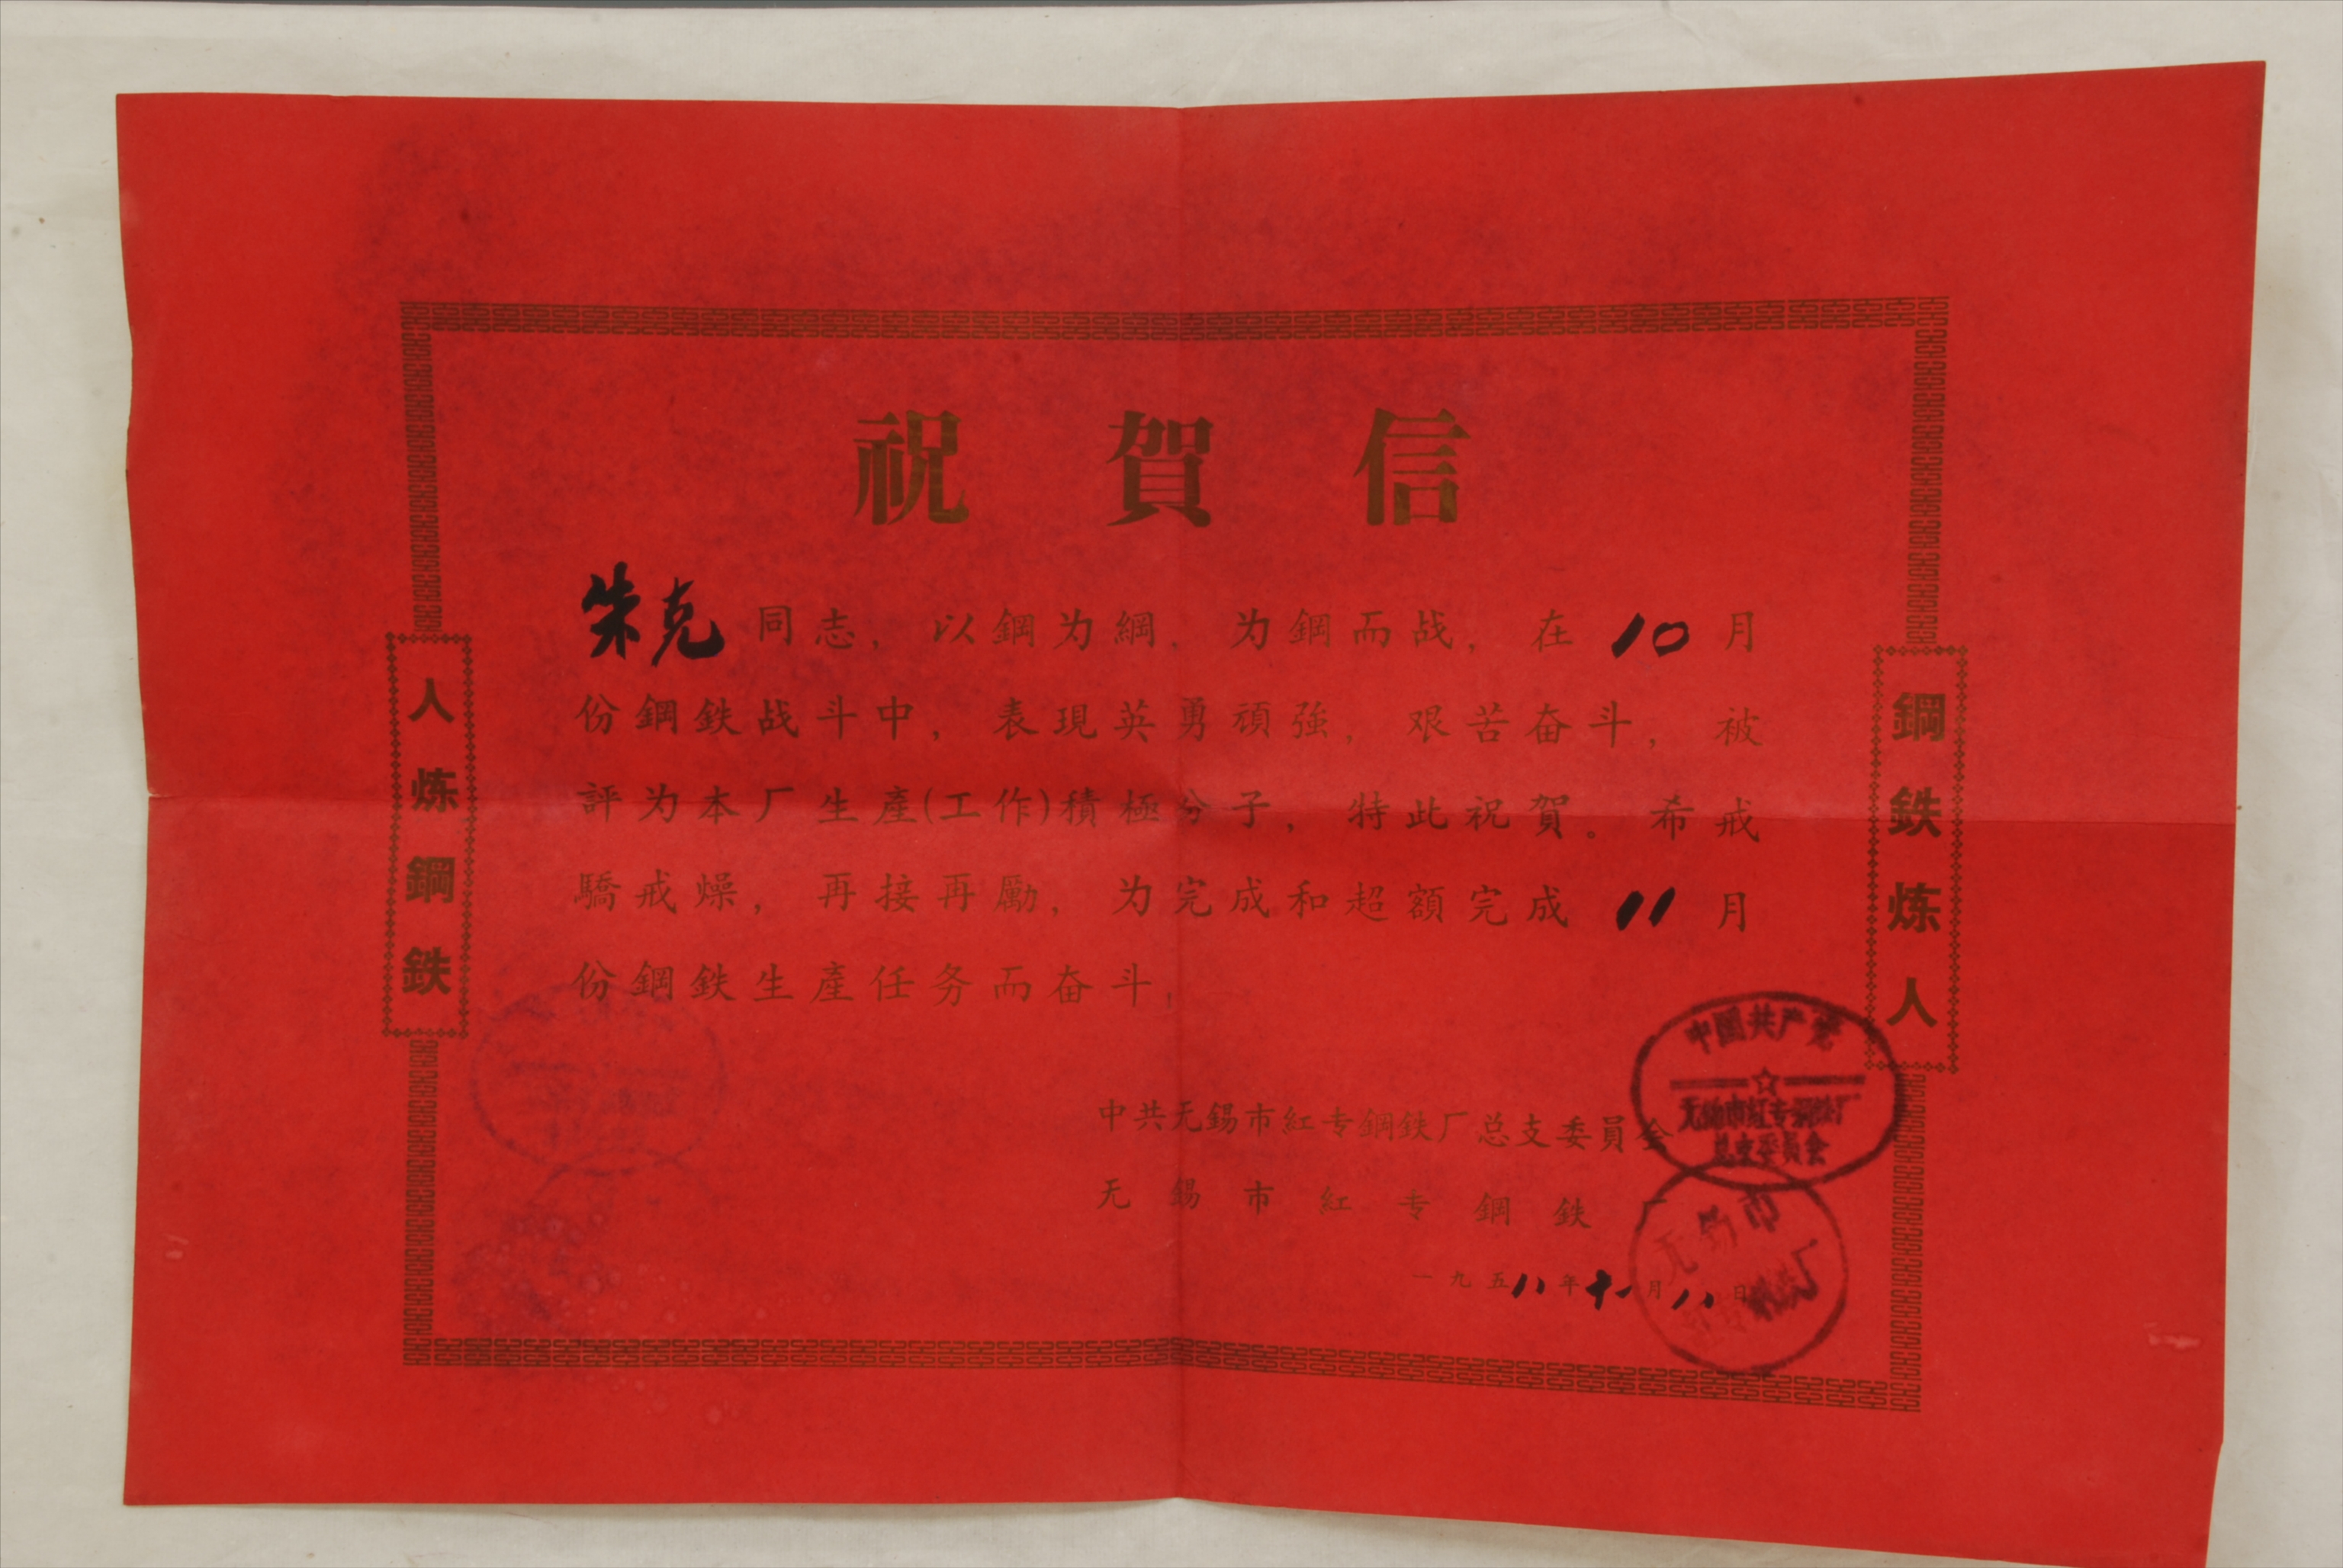 祝賀信
朱克同志，以鋼为綱，为鋼而战，在10月
份鋼鉄战斗中，表現英勇頑強，艰苦奋斗，被
評为本厂生產(工作)積極分子，特此祝賀。希戒
驕戒燥，再接再勵，为完成和超額完成11月
份鋼鉄生產任务而奋斗，
人炼鋼鉄
鋼鉄炼人
中共无錫市紅专鋼鉄厂总支委員会
无錫市紅专鋼鉄厂
一九五八年十一月八日
中國共产党
无錫市紅专鋼鉄厂
总支委員会
无錫市